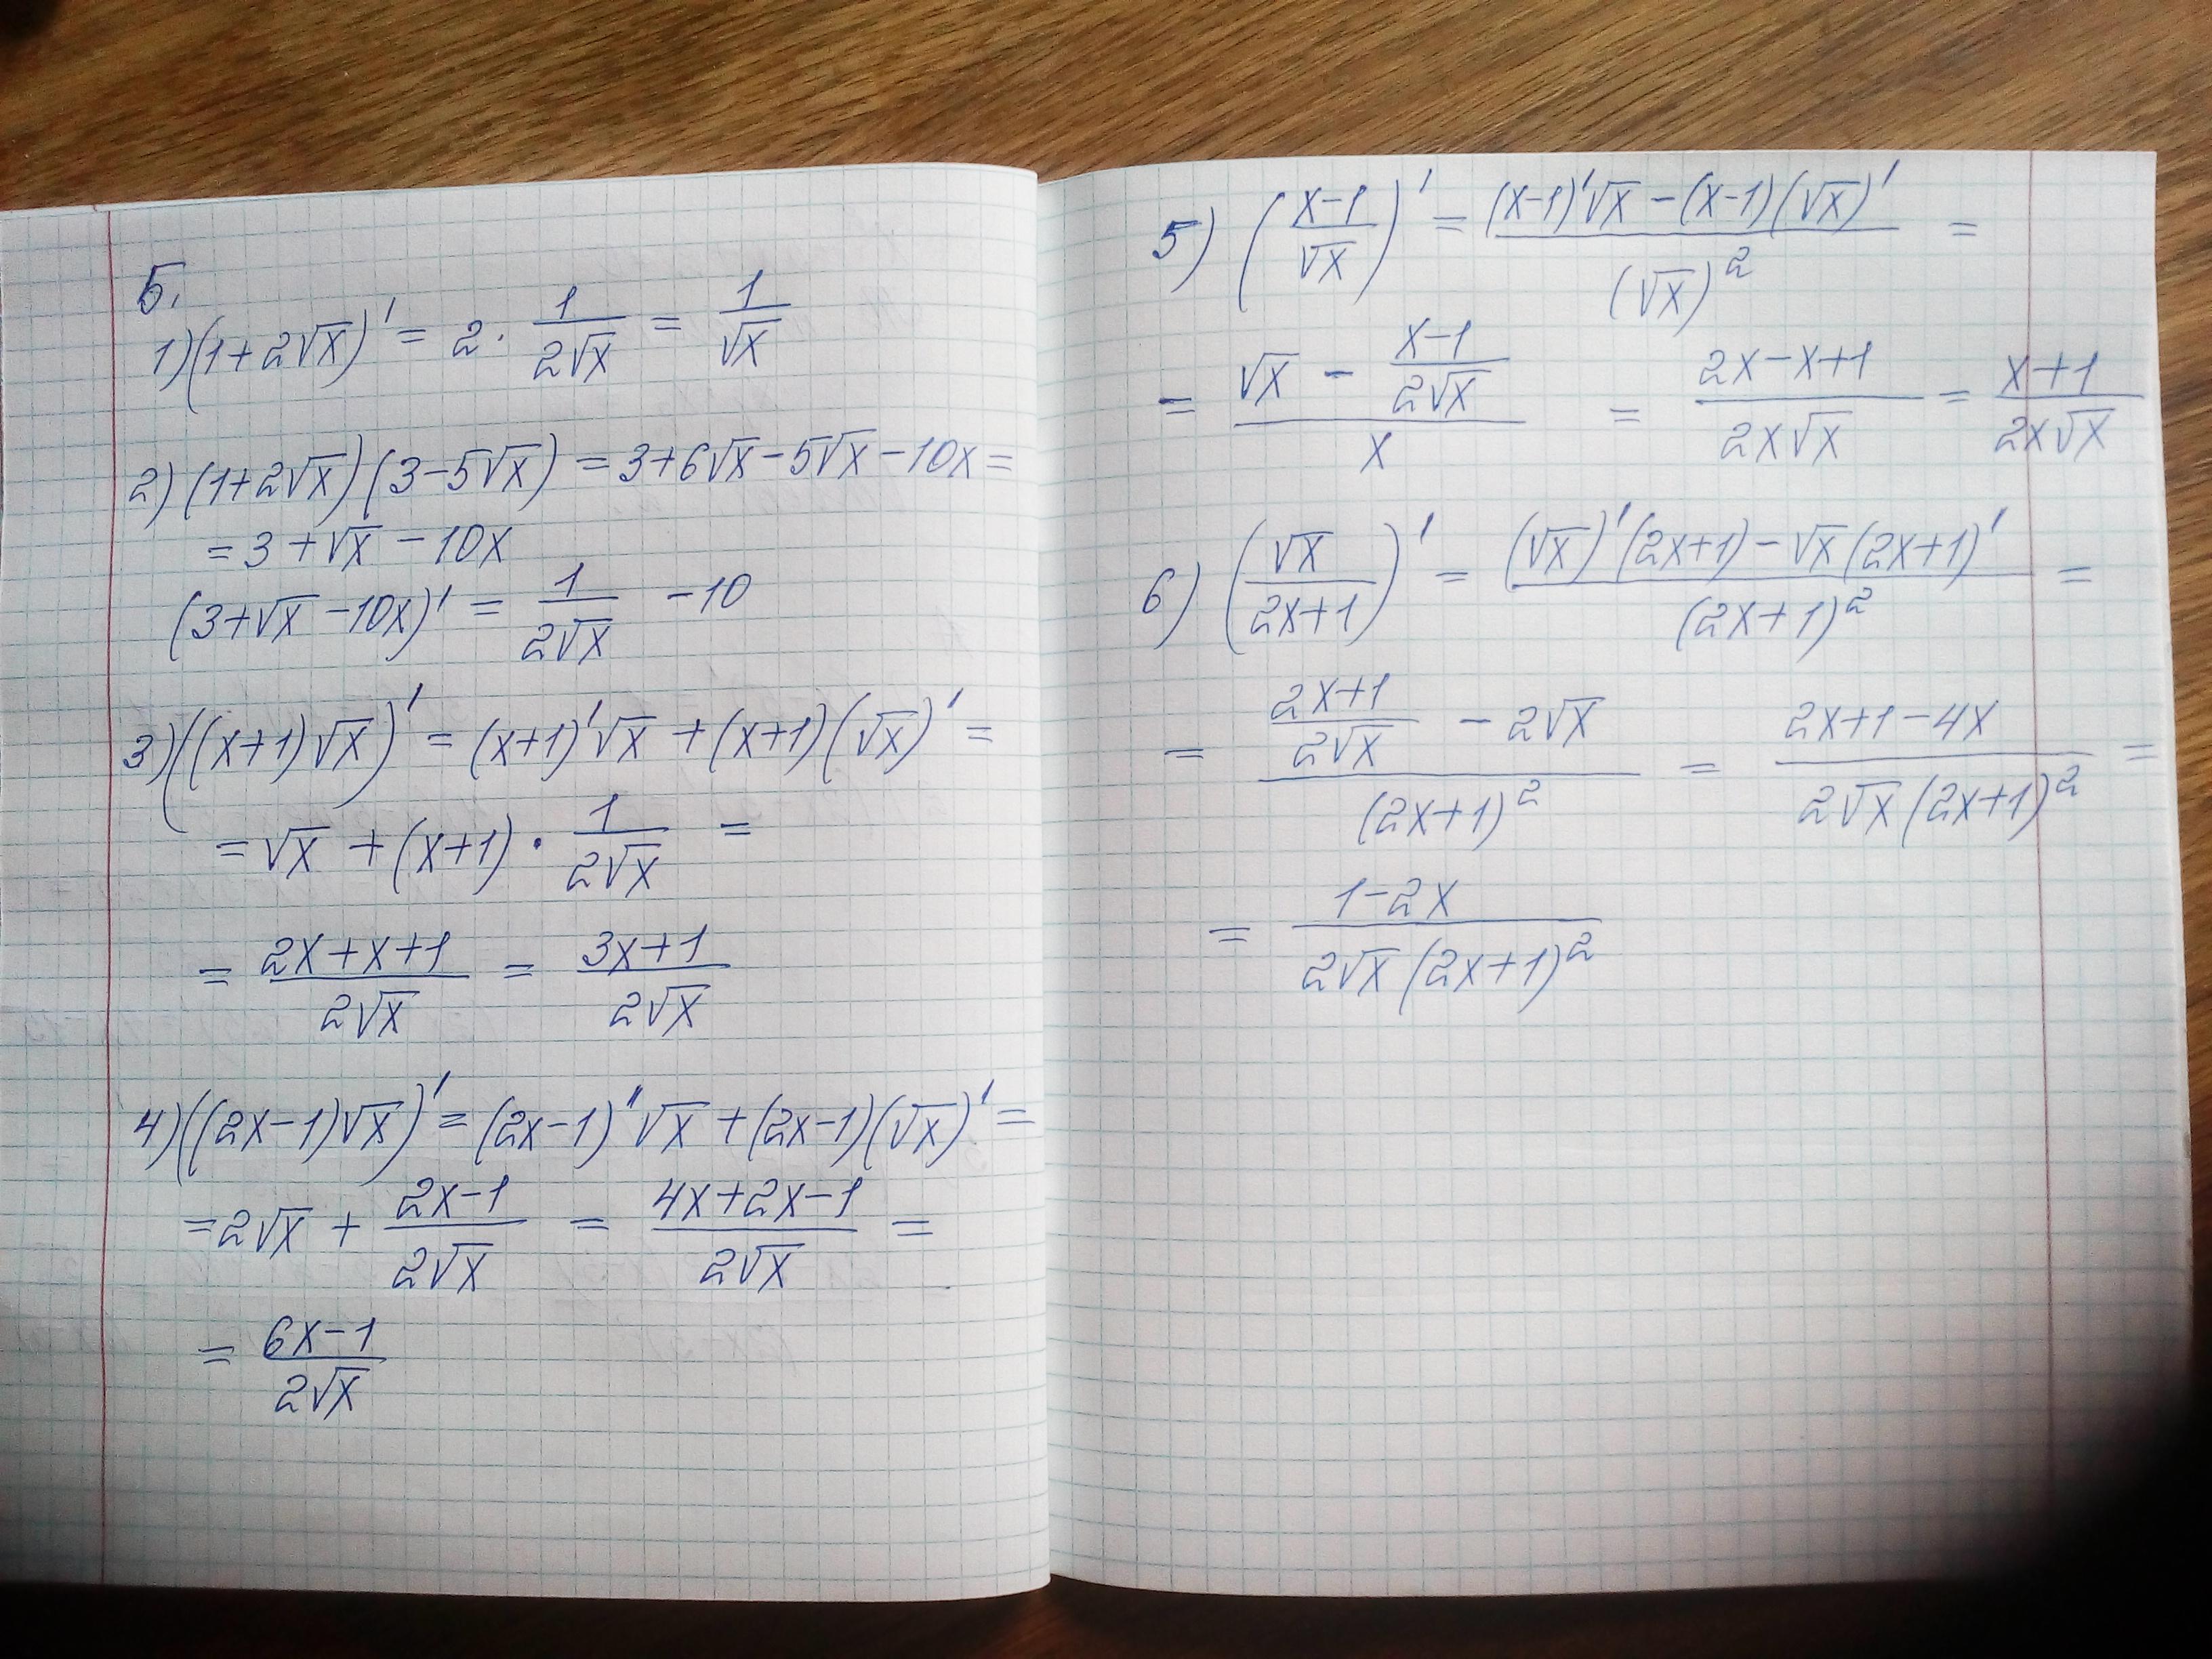 5.
1) (1+2√x)' = 2 · 1/(2√x) = 1/√x
2) (1+2√x)(3-5√x) = 3+6√x-5√x-10x =
= 3+√x-10x
(3+√x-10x)' = 1/(2√x) -10
3) ((x+1)√x)' = (x+1)'√x + (x+1)(√x)' =
= √x + (x+1) · 1/(2√x) =
= (2x+x+1)/(2√x) = (3x+1)/(2√x)
4) ((2x-1)√x)' = (2x-1)''√x + (2x-1)(√x)' =
= 2√x + (2x-1)/(2√x) = (4x+2x-1)/(2√x) =
= (6x-1)/(2√x)
5) ((x-1)/√x)' = ((x-1)'√x - (x-1)(√x)')/(√x)² =
= (√x - (x-1)/(2√x))/x = (2x-x+1)/(2x√x) = (x+1)/(2x√x)
6) (√x/(2x+1))' = ((√x)'(2x+1) - √x(2x+1)')/(2x+1)² =
= ((2x+1)/(2√x) - 2√x)/(2x+1)² = (2x+1-4x)/(2√x(2x+1)²) =
= (1-2x)/(2√x(2x+1)²)